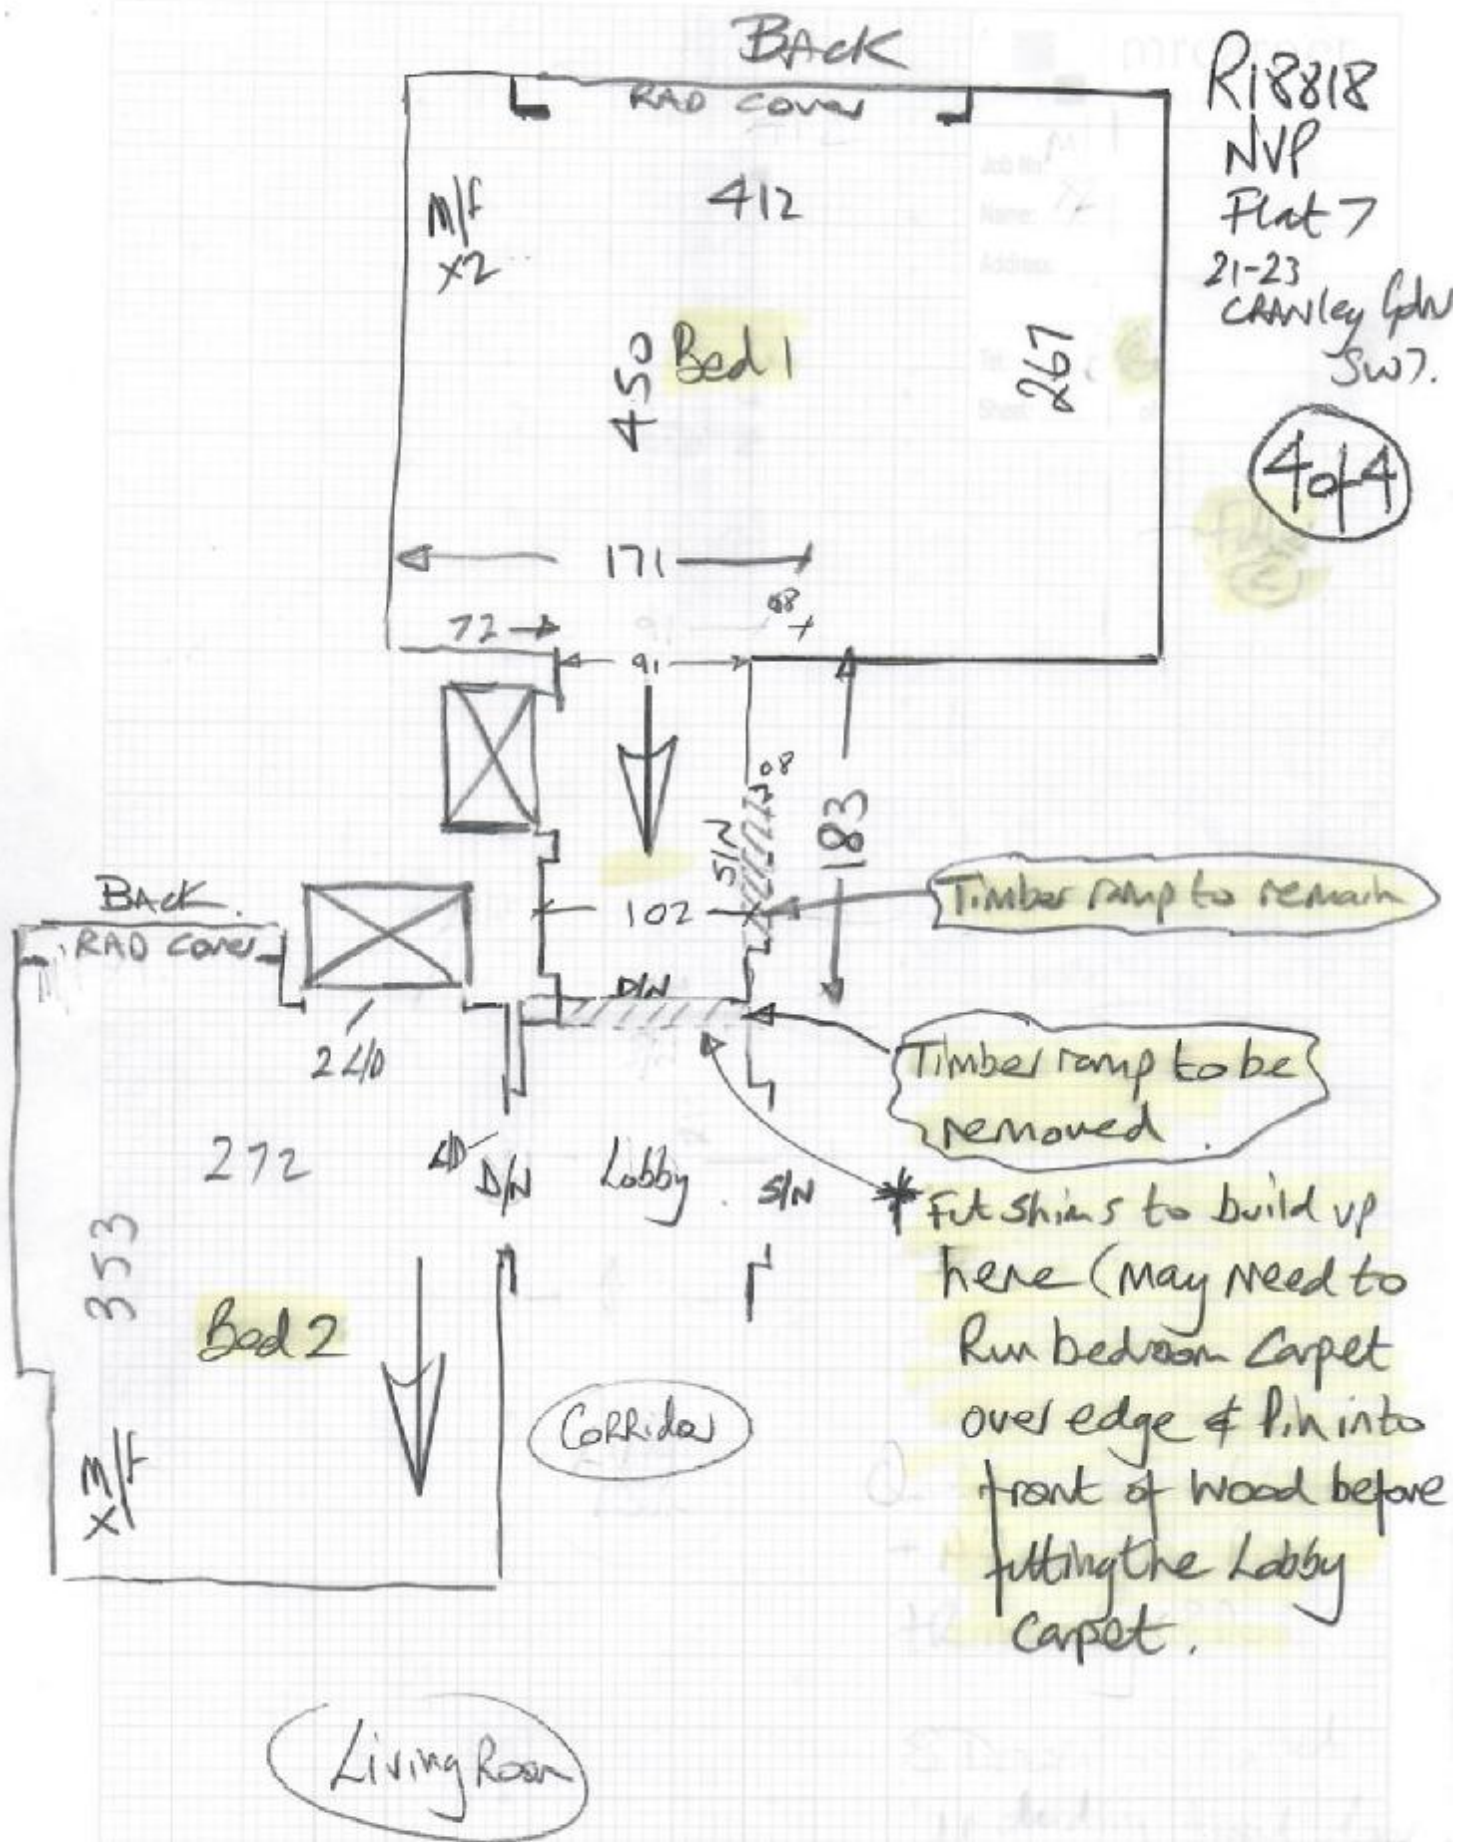 BACK
RAD COVER
R18818
NVP
Flat 7
21-23
CRANley Gdn
SW7.
4 of 4
M/F
x2
412
450
Bed 1
267
171
08
72
91
91
08
S/N
183
102
Timber ramp to remain
D/N
BACK.
RAD Cover
240
Timber ramp to be
removed.
272
D/N
Lobby
S/N
* Fit shims to build up
here (may need to
Run bedroom Carpet
over edge & Pin into
front of wood before
fitting the Lobby
carpet.
353
Bed 2
CORRidor
M/F
X
Living Room